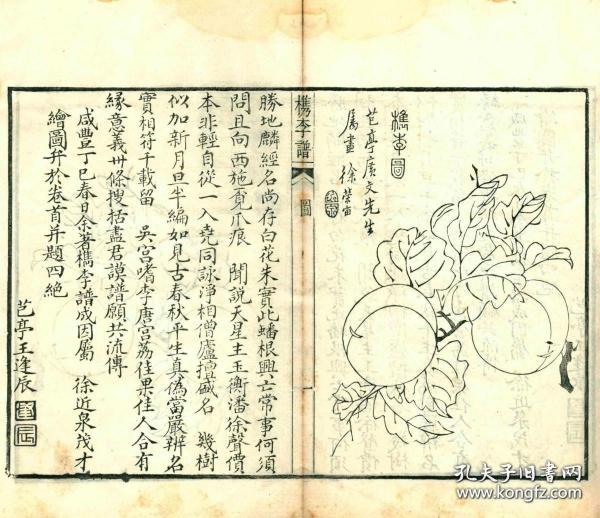 檇李圖
芑亭廣文先生
屬畫 徐榮宙
檇李譜 圖 一
勝地麟經名尚存白花朱實此蟠根興亡常事何須
問且向西施覓爪痕 聞說天星主玉衡潘徐聲價
本非輕自從一入堯同詠淨相僧廬擅盛名 幾樹
似加新月旦半編如見古春秋平生真偽當嚴辨名
實相符千載留 吳宮嗜李唐宮荔佳果佳人合有
緣意義卅條搜括盡君謨譜願共流傳
咸豐丁巳春日余著檇李譜成因屬 徐近泉茂才
繪圖弁於卷首并題四絕
芑亭王逢辰
孔夫子旧书网
www.kongfz.com